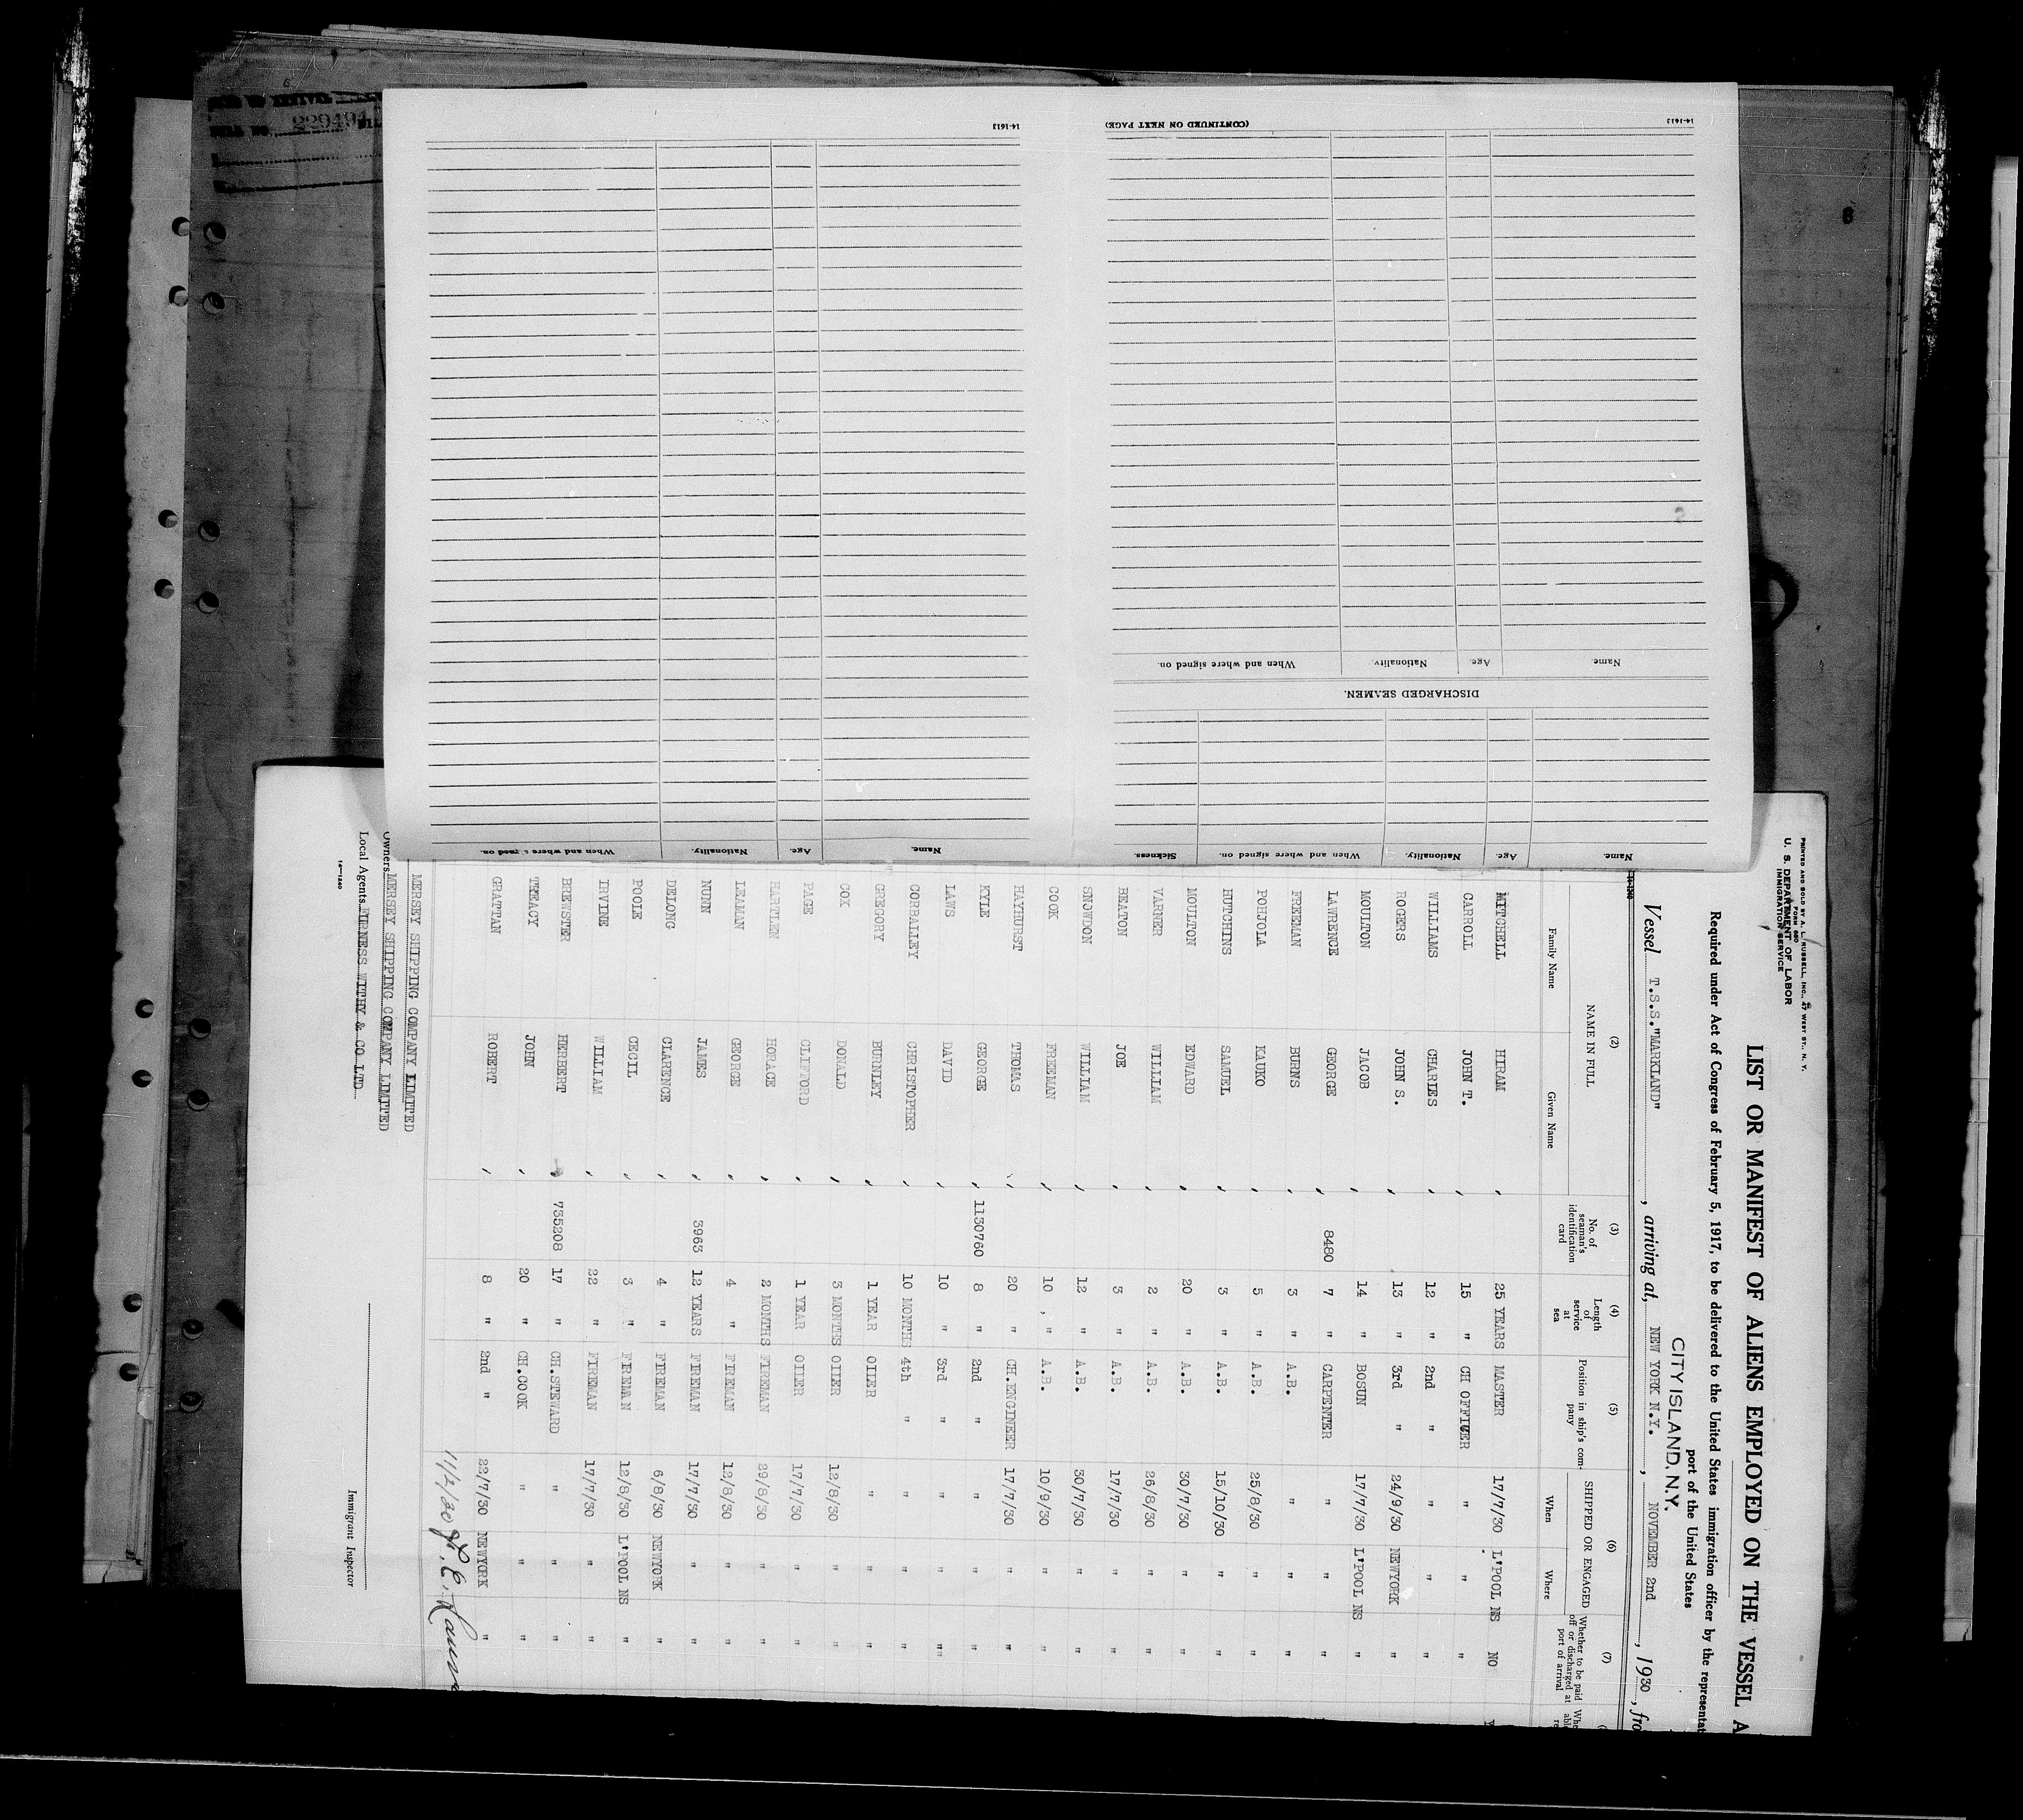 PRINTED AND SOLD BY A. L. RUSSELL, INC., 47 WEST ST., N. Y.
Form 680
U. S. DEPARTMENT OF LABOR
IMMIGRATION SERVICE
LIST OR MANIFEST OF ALIENS EMPLOYED ON THE VESSEL A
Required under Act of Congress of February 5, 1917, to be delivered to the United States immigration officer by the representat
port of the United States
CITY ISLAND, N.Y.
Vessel T.S.S."MARKLAND", arriving at, NEW YORK N.Y., NOVEMBER 2nd, 1930, fro
(2) (3) (4) (5) (6) (7)
NAME IN FULL No. of seaman's identification card Length of service at sea Position in ship's company SHIPPED OR ENGAGED Whether to be paid off or discharged at port of arrival
Family Name Given Name When Where
MITCHELL HIRAM 25 YEARS MASTER 17/7/30 L'POOL NS NO
CARROLL JOHN T. 15 " CH OFFICER " " "
WILLIAMS CHARLES 12 " 2nd " " " "
ROGERS JOHN S. 13 " 3rd " 24/9/30 NEWYORK "
MOULTON JACOB 14 " BOSUN 17/7/30 L'POOL NS "
LAWRENCE GEORGE 8480 7 " CARPENTER " " "
FREEMAN BURNS 3 " A.B. " " "
POHJOLA KAUKO 5 " A.B. 25/8/30 " "
HUTCHINS SAMUEL 3 " A.B. 15/10/30 " "
MOULTON EDWARD 20 " A.B. 30/7/30 " "
VARNER WILLIAM 2 " A.B. 26/8/30 " "
BEATON JOE 3 " A.B. 17/7/30 " "
SNOWDON WILLIAM 12 " A.B. 30/7/30 " "
COOK FREEMAN 10 " A.B. 10/9/30 " "
HAYHURST THOMAS 20 " CH.ENGINEER 17/7/30 " "
KYLE GEORGE 1130760 8 " 2nd " " " "
LAWS DAVID 10 " 3rd " " " "
CORBALLEY CHRISTOPHER 10 MONTHS 4th " " " "
GREGORY BURNLEY 1 YEAR OILER " " "
COX DONALD 3 MONTHS OILER 12/8/30 " "
PAGE CLIFFORD 1 YEAR OILER 17/7/30 " "
HARTLEN HORACE 2 MONTHS FIREMAN 29/8/30 " "
LEAMAN GEORGE 4 " FIREMAN 12/8/30 " "
NUNN JAMES 3963 12 YEARS FIREMAN 17/7/30 " "
DELONG CLARENCE 4 " FIREMAN 6/8/30 NEWYORK "
POOLE CECIL 3 " FIREMAN 12/8/30 L'POOL NS "
IRVINE WILLIAM 22 " FIREMAN 17/7/30 " "
BREWSTER HERBERT 735208 17 " CH.STEWARD " " "
TREACY JOHN 20 " CH.COOK " " "
GRATTAN ROBERT 8 " 2nd " 22/7/30 NEWYORK "
MERSEY SHIPPING COMPANY LIMITED
Owners MERSEY SHIPPING COMPANY LIMITED
Local Agents FURNESS WITHY & CO LTD
14—1240
Immigrant Inspector
Name. Age. Nationality. When and where signed on. Sickness.
DISCHARGED SEAMEN.
Name. Age. Nationality. When and where signed on.
14-1613
(CONTINUED ON NEXT PAGE)
Name. Age. Nationality. When and where signed on.
14-1613